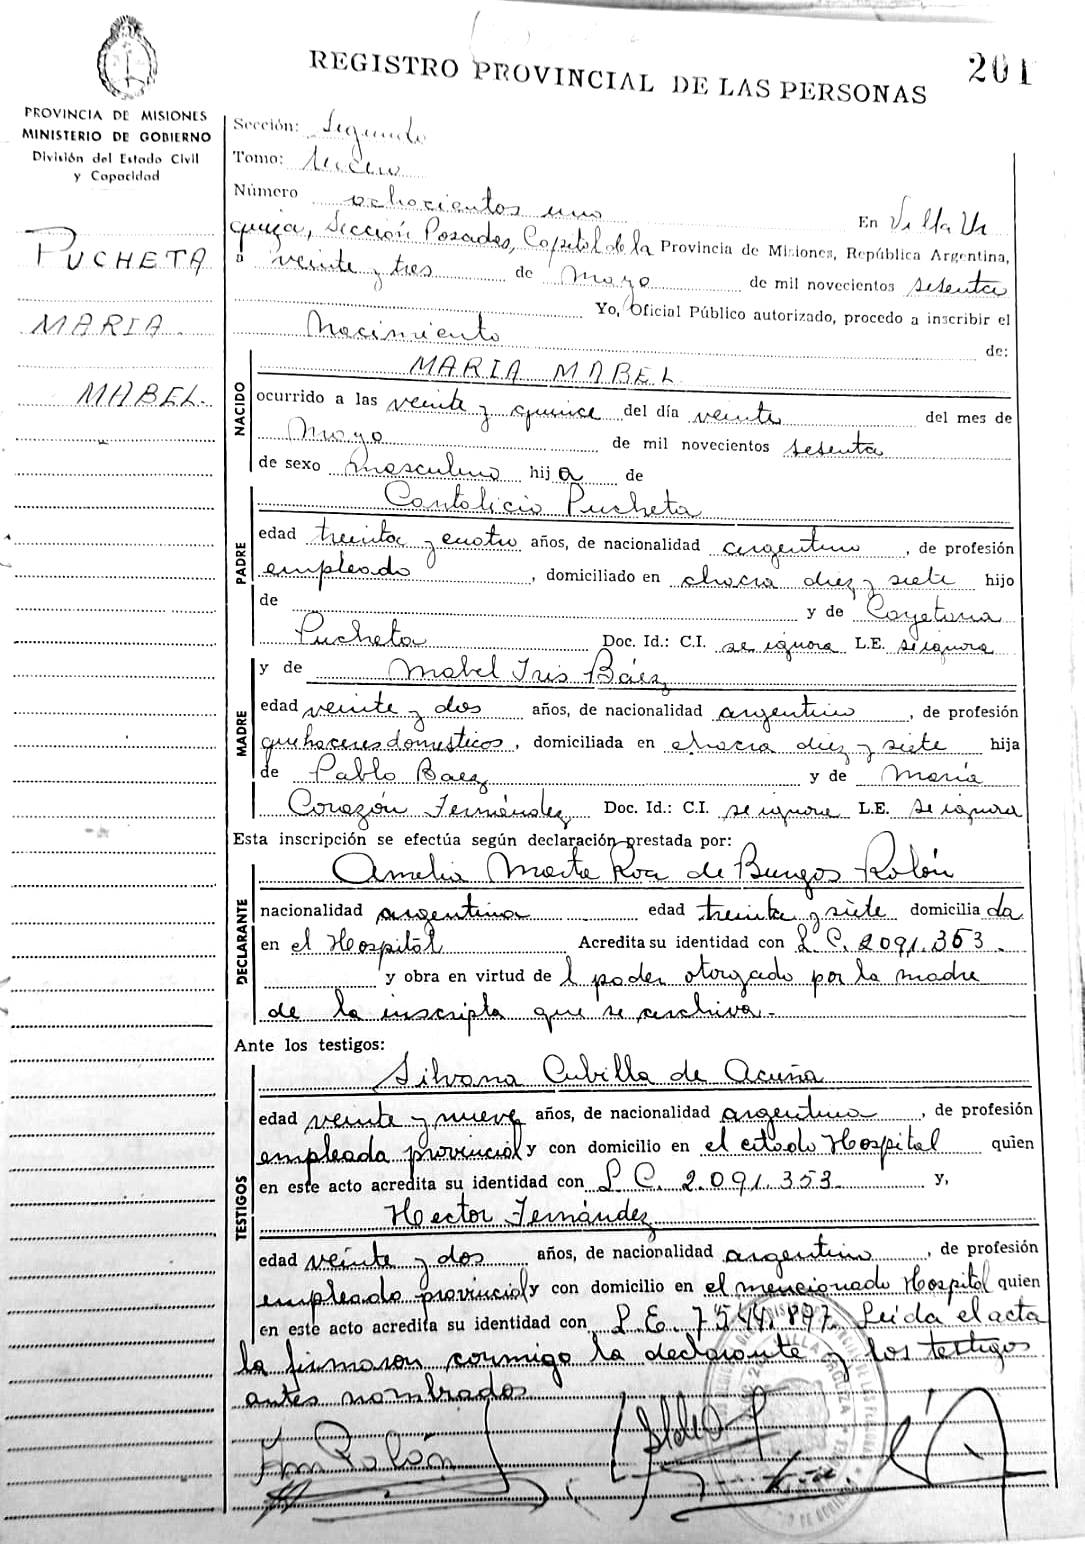 REGISTRO PROVINCIAL DE LAS PERSONAS
201
PROVINCIA DE MISIONES
MINISTERIO DE GOBIERNO
División del Estado Civil
y Capacidad
PUCHETA
MARIA
MABEL.
Sección: Segunda
Tomo: tercero
Número ochocientos uno En Villa Ur
quiza, Sección Posadas, Capital de la Provincia de Misiones, República Argentina,
a veinte y tres de Mayo de mil novecientos sesenta
Yo, Oficial Público autorizado, procedo a inscribir el
Nacimiento de:
NACIDO
MARIA MABEL
ocurrido a las veinte y quince del día veinte del mes de
Mayo de mil novecientos sesenta
de sexo masculino hija de
PADRE
Cantalicio Pucheta
edad treinta y cuatro años, de nacionalidad argentino, de profesión
empleado, domiciliado en chacra diez y siete hijo
de y de Cayetana
Pucheta Doc. Id.: C.I. se ignora L.E. se ignora
MADRE
y de Mabel Iris Báez
edad veinte y dos años, de nacionalidad argentino, de profesión
quehaceres domesticos, domiciliada en chacra diez y siete hija
de Pablo Baez y de María
Corazón Fernández Doc. Id.: C.I. se ignora L.E. se ignora
Esta inscripción se efectúa según declaración prestada por:
DECLARANTE
Amelia Marta Roa de Burgos Rolón
nacionalidad argentina edad treinta y siete domicilia da
en el Hospital Acredita su identidad con L.C. 2091.353.
y obra en virtud de l poder otorgado por la madre
de la inscripta que se archiva.-
Ante los testigos:
TESTIGOS
Silvana Cubilla de Acuña
edad veinte y nueve años, de nacionalidad argentina, de profesión
empleada provincial y con domicilio en el citado Hospital quien
en este acto acredita su identidad con L.C. 2.091.353 y,
Hector Fernández
edad veinte y dos años, de nacionalidad argentino, de profesión
empleado provincial y con domicilio en el mencionado Hospital quien
en este acto acredita su identidad con L.E. 7544.897. Leída el acta
la firmaron conmigo la declarante y los testigos
antes nombrados
Am Rolón